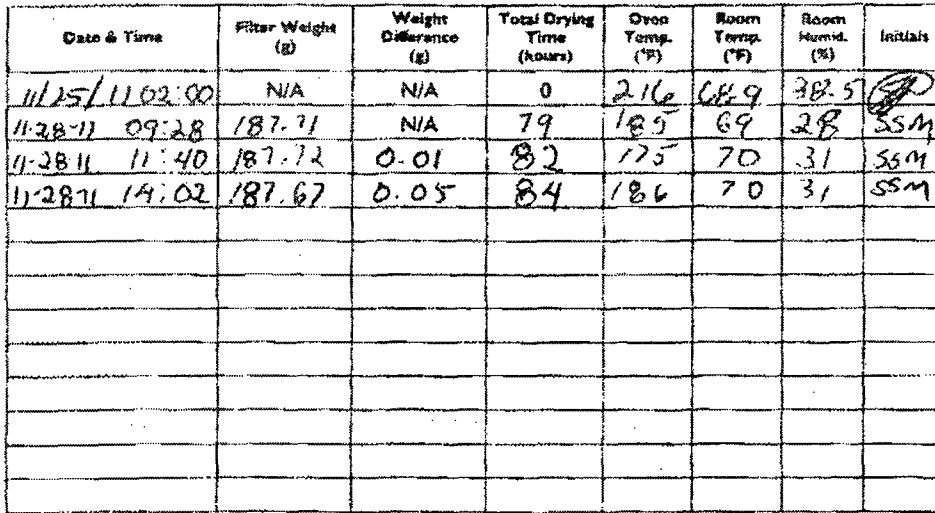 Date & Time | Filter Weight (g) | Weight Difference (g) | Total Drying Time (hours) | Oven Temp. (°F) | Room Temp. (°F) | Room Humid. (%) | Initials
11/25/11 02:00 | N/A | N/A | 0 | 216 | 68.9 | 38.5
11-28-11 09:28 | 187.71 | N/A | 79 | 185 | 69 | 28 | SSM
11-28 11 11:40 | 187.72 | 0.01 | 82 | 175 | 70 | 31 | SSM
11-28 11 14:02 | 187.67 | 0.05 | 84 | 186 | 70 | 31 | SSM